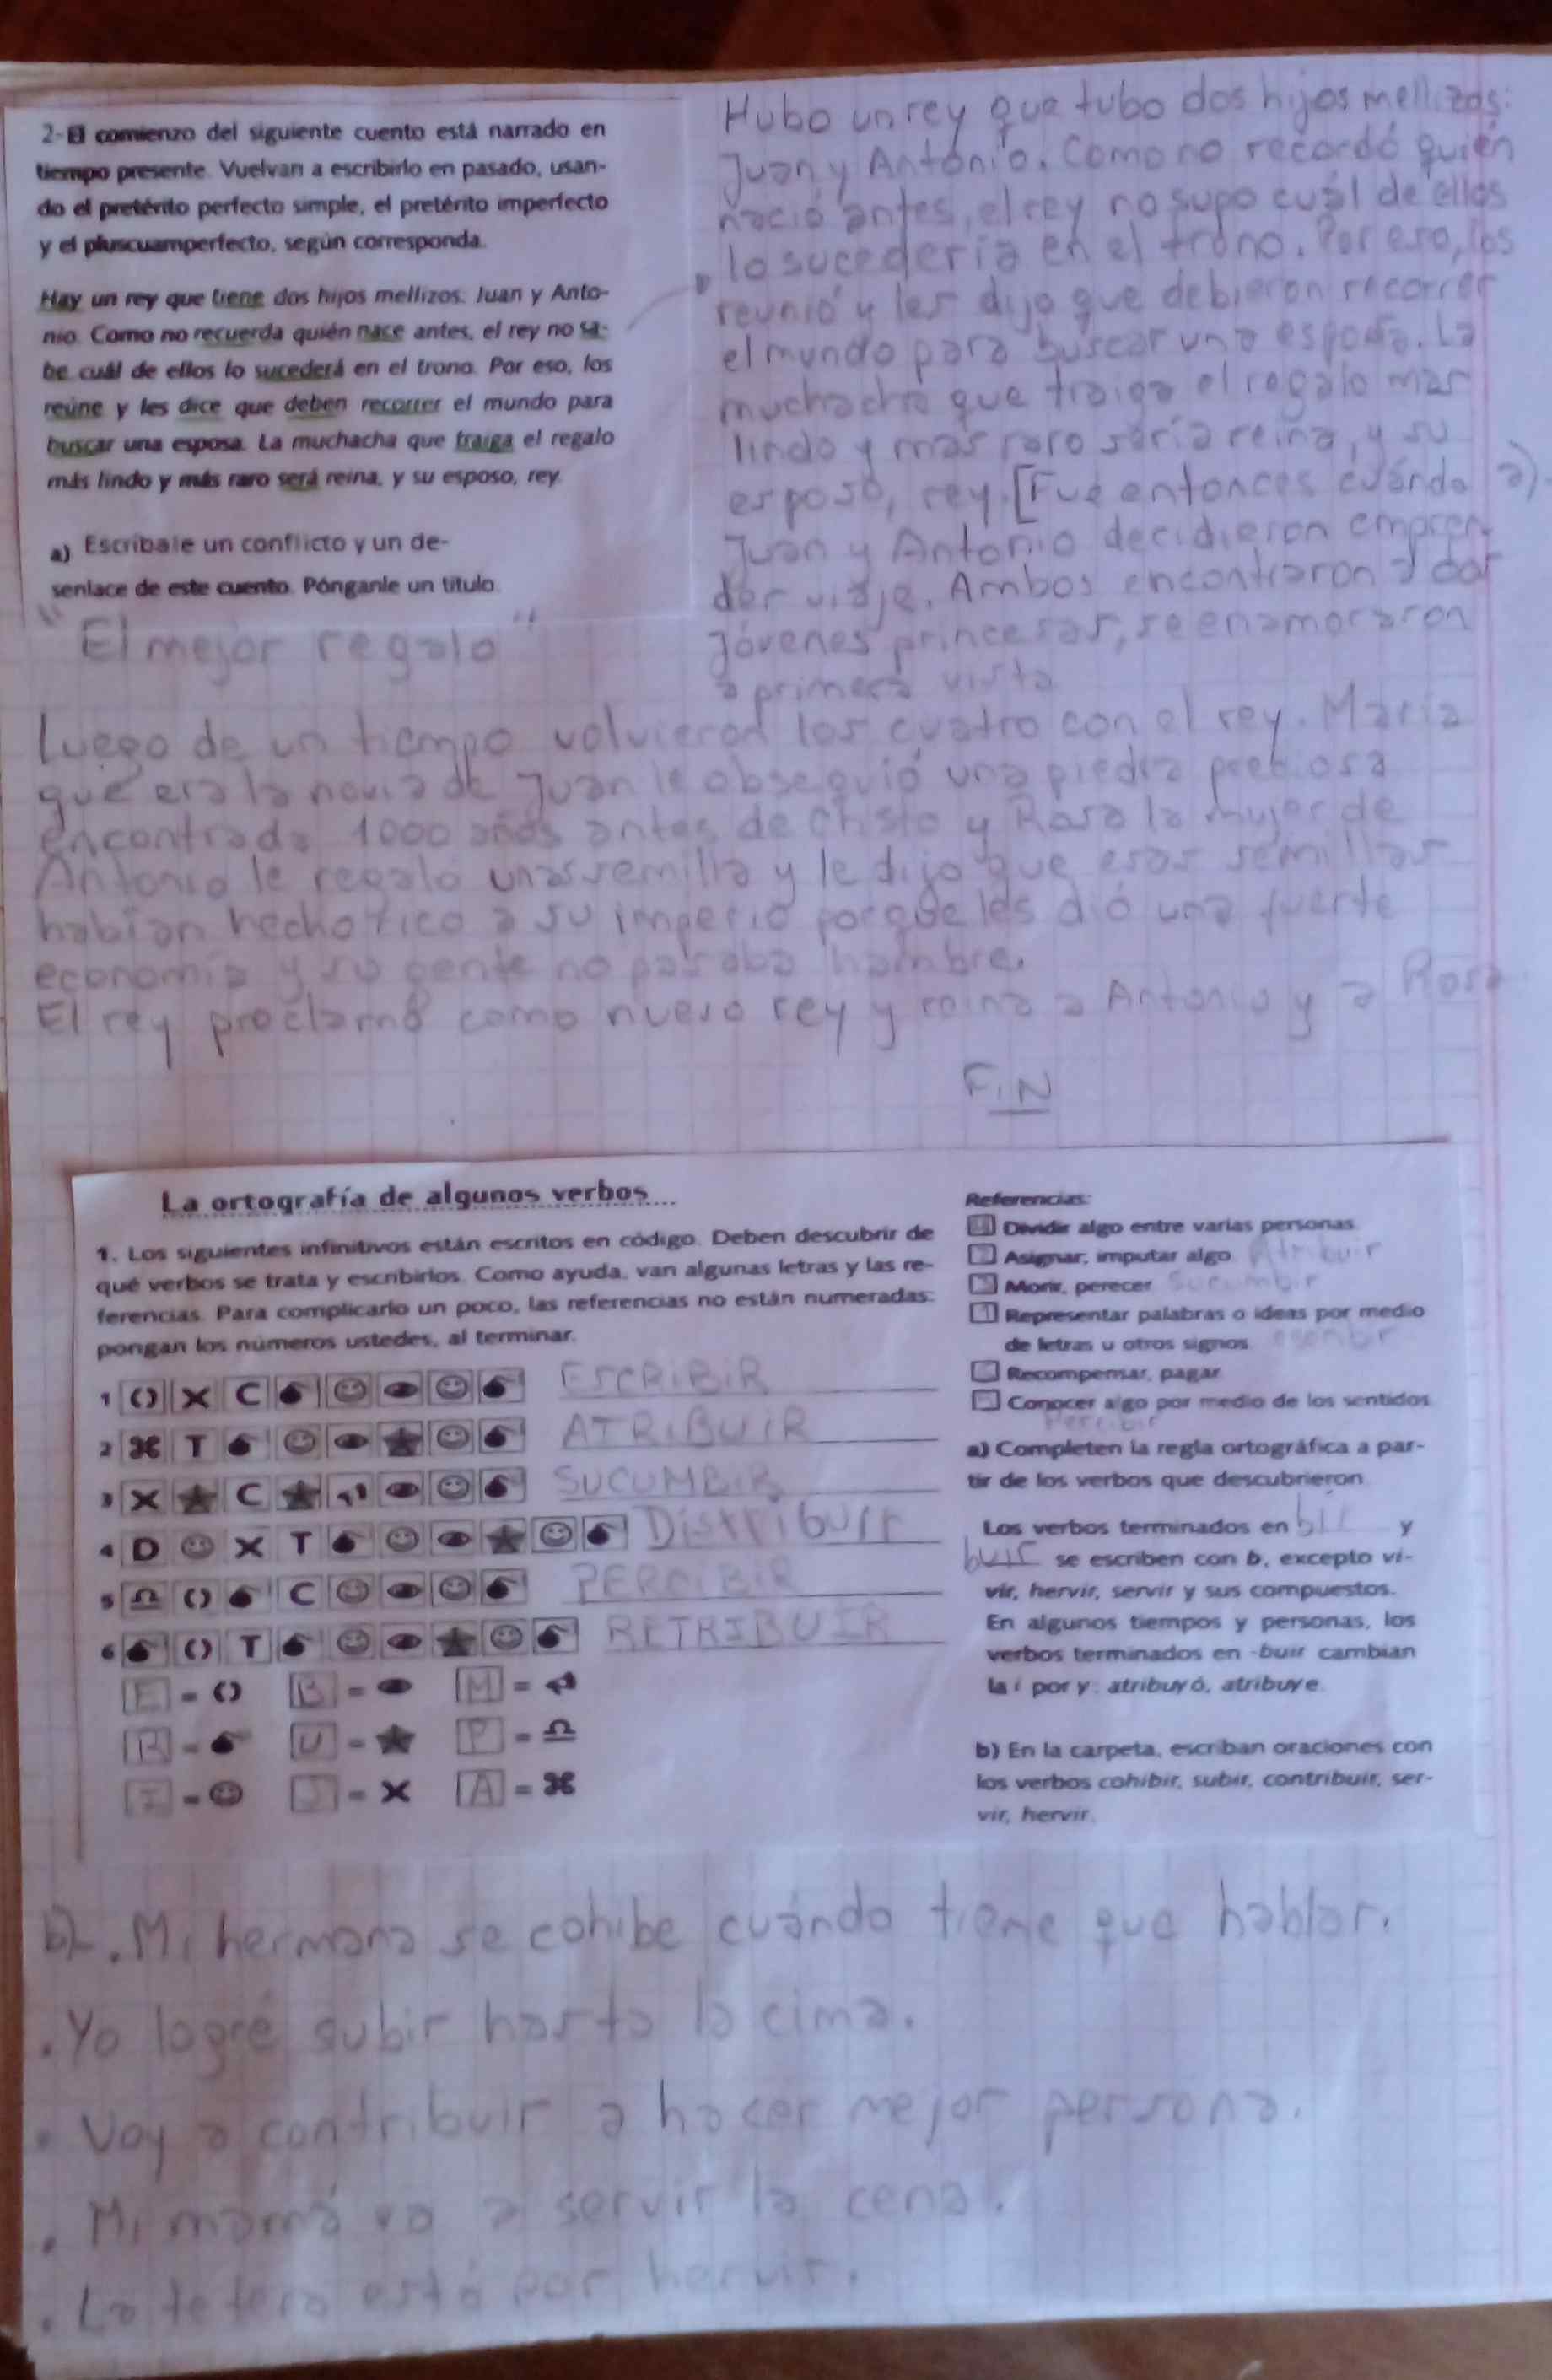 2- El comienzo del siguiente cuento está narrado en
tiempo presente. Vuelvan a escribirlo en pasado, usan-
do el pretérito perfecto simple, el pretérito imperfecto
y el pluscuamperfecto, según corresponda.
Hay un rey que tiene dos hijos mellizos: Juan y Anto-
nio. Como no recuerda quién nace antes, el rey no sa-
be cuál de ellos lo sucederá en el trono. Por eso, los
reúne y les dice que deben recorrer el mundo para
buscar una esposa. La muchacha que traiga el regalo
más lindo y más raro será reina, y su esposo, rey.
a) Escríbanle un conflicto y un de-
senlace de este cuento. Pónganle un título.
"El mejor regalo"
Hubo un rey que tubo dos hijos mellizos:
Juan y Antonio. Como no recordó quién
nació antes, el rey no supo cuál de ellos
lo sucedería en el trono. Por eso, los
reunió y les dijo que debieron recorrer
el mundo para buscar una esposa. La
muchacha que traiga el regalo mas
lindo y mas raro sería reina, y su
esposo, rey. [Fue entonces cuándo a)
Juan y Antonio decidieron empren-
der viaje. Ambos encontraron a dos
jóvenes princesas, se enamoraron
a primera vista
Luego de un tiempo volvieron los cuatro con el rey. María
que era la novia de Juan le obsequió una piedra preciosa
encontrada 1000 años antes de Christo y Rosa la mujer de
Antonio le regaló unas semilla y le dijo que esas semillas
habían hecho rico a su imperio porque les dió una fuerte
economía y su gente no pasaba hambre.
El rey proclamó como nuevo rey y reina a Antonio y a Rosa
FIN
La ortografía de algunos verbos
1. Los siguientes infinitivos están escritos en código. Deben descubrir de
qué verbos se trata y escribirlos. Como ayuda, van algunas letras y las re-
ferencias. Para complicarlo un poco, las referencias no están numeradas:
pongan los números ustedes, al terminar.
1 C ESCRIBIR
2 T ATRIBUIR
3 C SUCUMBIR
4 D T Distribuir
5 C PERCIBIR
6 T RETRIBUIR
E = B = M =
R = U = P =
I = S = A =
Referencias:
4 Dividir algo entre varias personas.
2 Asignar, imputar algo. Atribuir
3 Morir, perecer. Sucumbir
1 Representar palabras o ideas por medio
de letras u otros signos. escribir
Recompensar, pagar.
Conocer algo por medio de los sentidos.
Percibir
a) Completen la regla ortográfica a par-
tir de los verbos que descubrieron.
Los verbos terminados en bir y
buir se escriben con b, excepto vi-
vir, hervir, servir y sus compuestos.
En algunos tiempos y personas, los
verbos terminados en -buir cambian
la i por y: atribuyó, atribuye.
b) En la carpeta, escriban oraciones con
los verbos cohibir, subir, contribuir, ser-
vir, hervir.
b). Mi hermana se cohibe cuándo tiene que hablar.
. Yo logré subir hasta la cima.
. Voy a contribuir a hacer mejor persona.
. Mi mamá va a servir la cena.
. La tetera está por hervir.